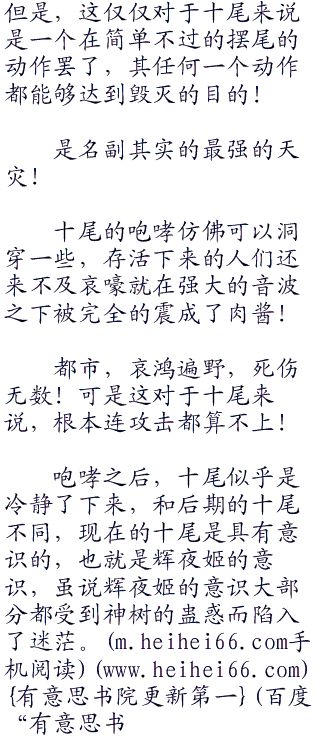 但是，这仅仅对于十尾来说
是一个在简单不过的摆尾的
动作罢了，其任何一个动作
都能够达到毁灭的目的！
是名副其实的最强的天
灾！
十尾的咆哮仿佛可以洞
穿一些，存活下来的人们还
来不及哀嚎就在强大的音波
之下被完全的震成了肉酱！
都市，哀鸿遍野，死伤
无数！可是这对于十尾来
说，根本连攻击都算不上！
咆哮之后，十尾似乎是
冷静了下来，和后期的十尾
不同，现在的十尾是具有意
识的，也就是辉夜姬的意
识，虽说辉夜姬的意识大部
分都受到神树的蛊惑而陷入
了迷茫。(m.heihei66.com手
机阅读)(www.heihei66.com)
{有意思书院更新第一}(百度
“有意思书